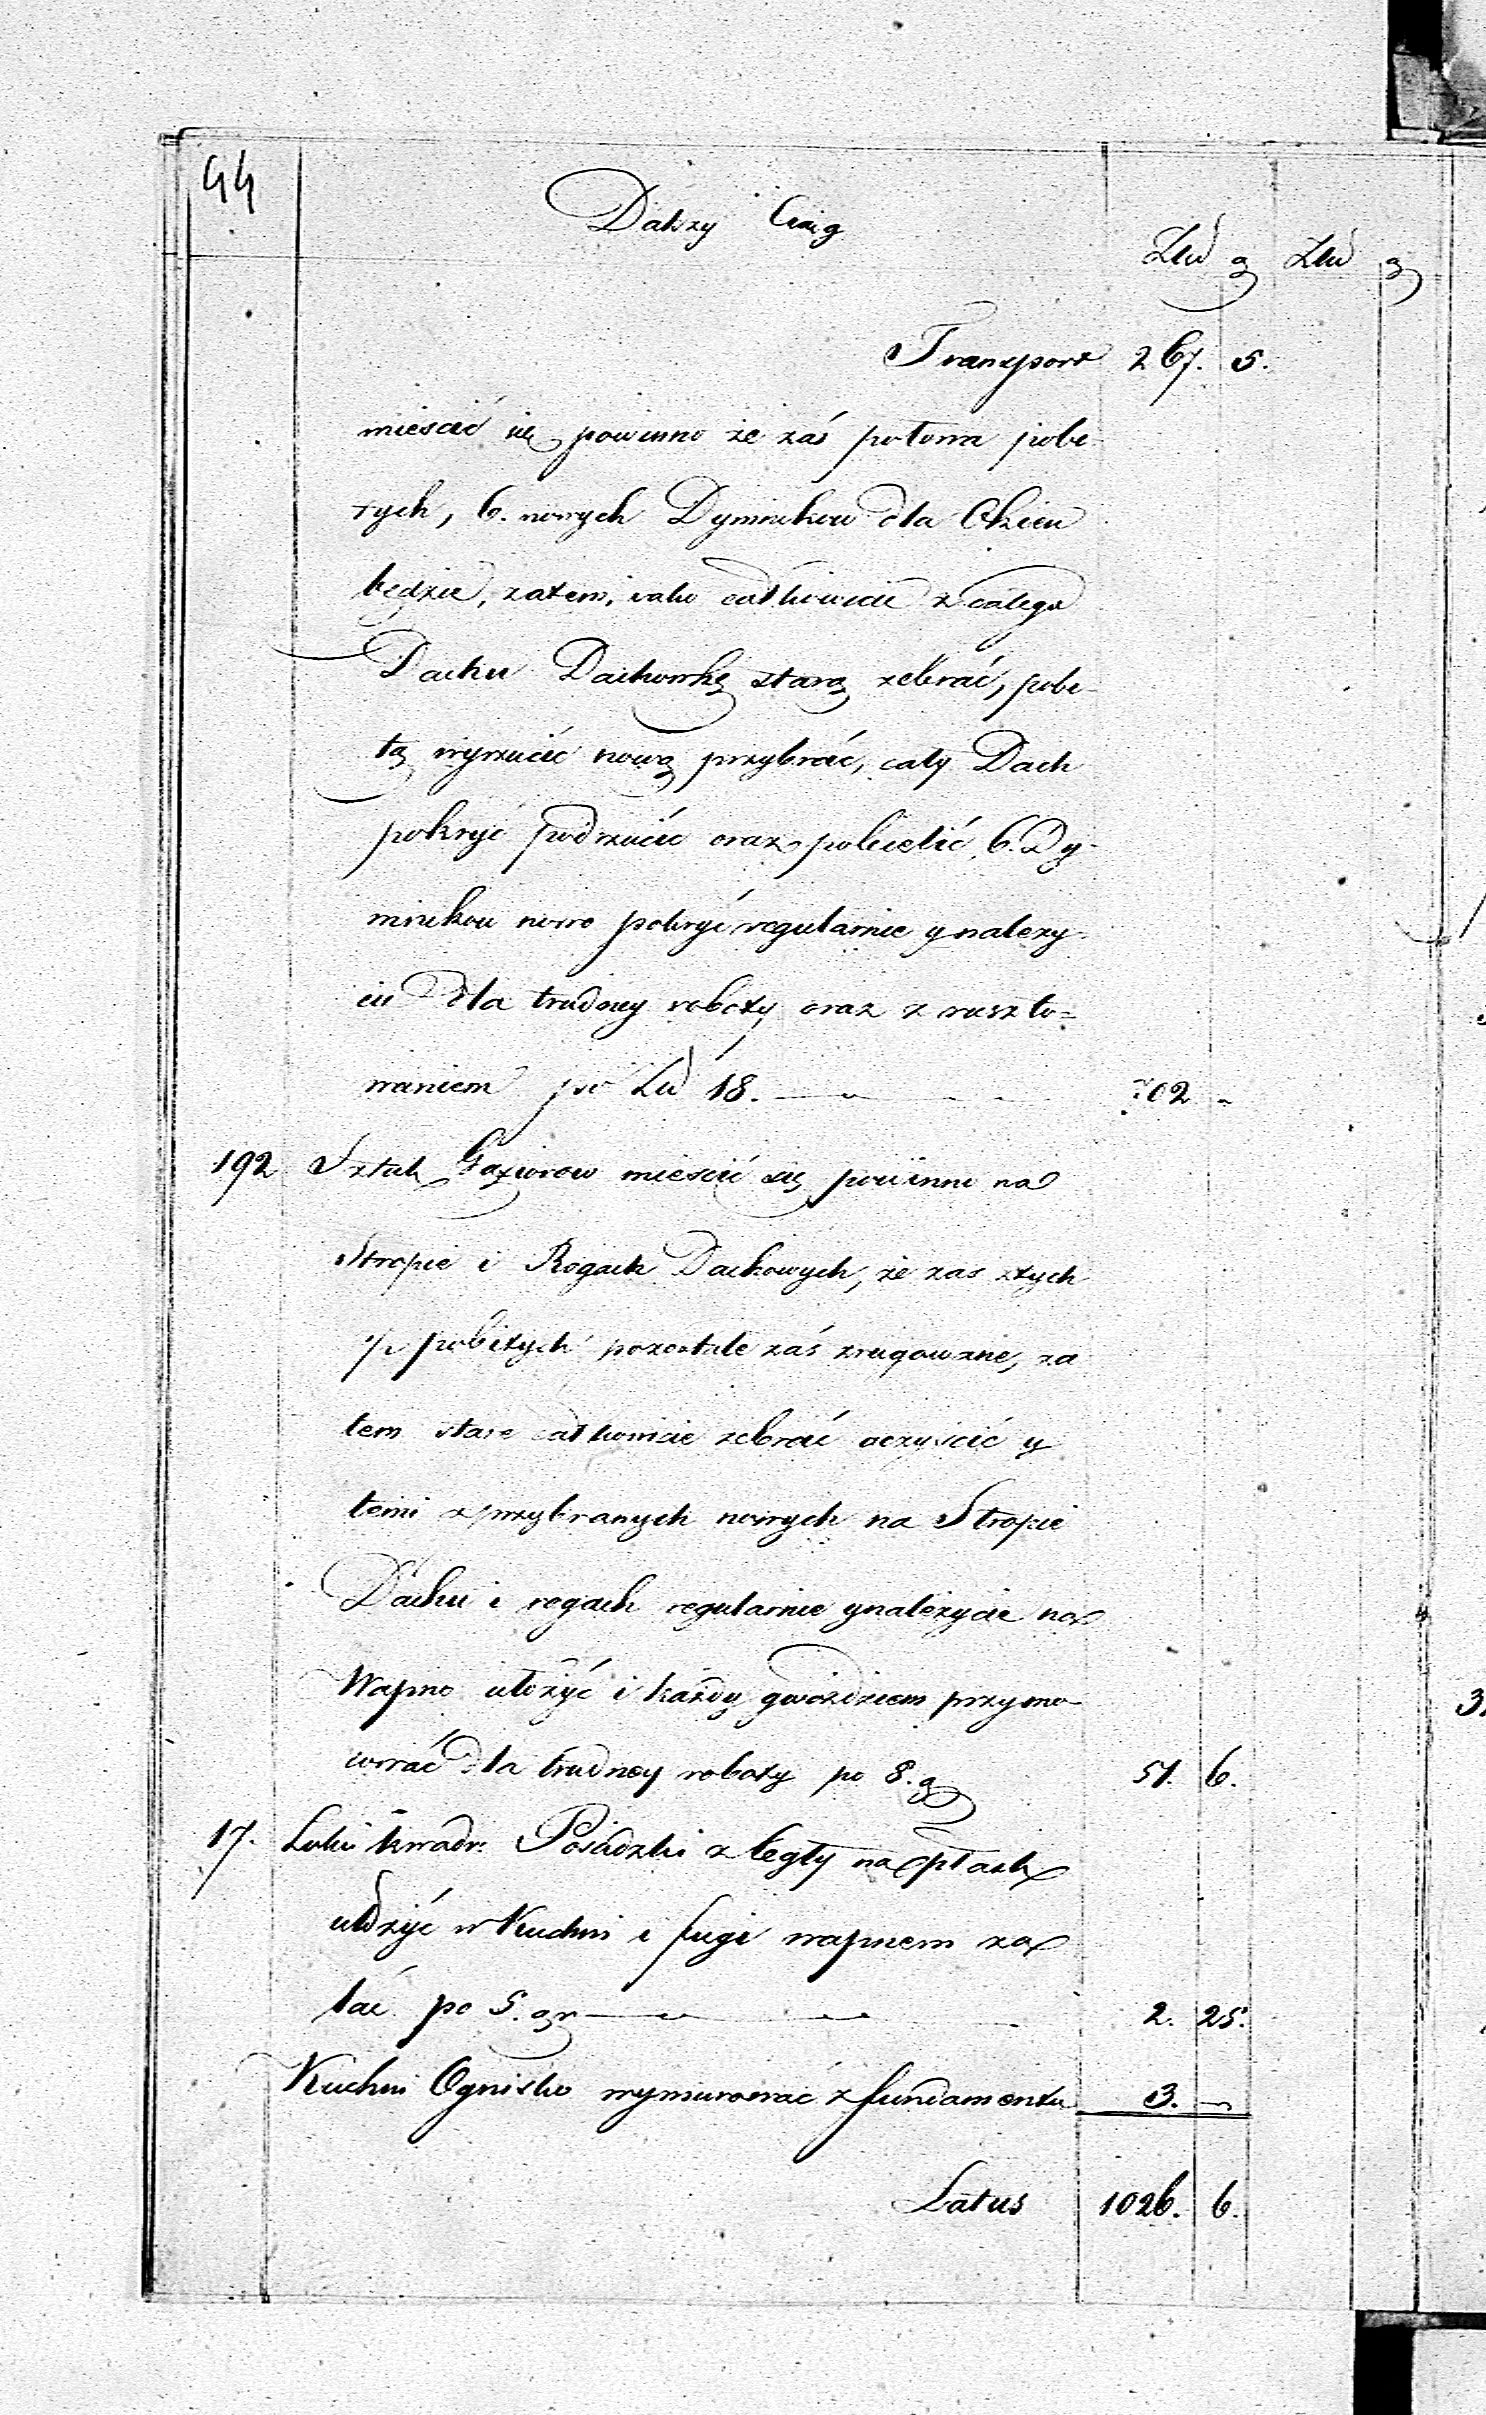 44
Dalszy Ciąg
Złw g Złw g
Transport 267. 5.
mieścić się powinno że zaś połowa pobi-
tych, 6. nowych Dymnikow dla Okien
będzie, zatem, iako całkowicie z całego
Dachu Dachowkę starą zebrać, pobi-
tą wyrzucić nową przybrać, cały Dach
pokryć podrzucić oraz pobielić 6. Dy-
mnikow nowo pokryć regularnie y należy-
cie dla trudney roboty oraz z ruszto=
waniem po 18. 702 -
192 Sztuk Gąsiorow mieścić się powinno na
Stropie i Rogach Dachowych, że zas z tych
pobitych pozostałe zaś zrugowane, za
tem stare całkowicie zebrać oczyścić y
temi z przybranych nowych na Stropie
Dachu i rogach regularnie y należycie na
Wapno ułożyć i każdy gwoździem przymo-
cować dla trudney roboty po 8. g 51. 6.
17. Łokci kwadr: Posadzki z Cegły na płask
ułożyć w Kuchni i fugi wapnem za
lać po 5. gr 2. 25.
Kuchni Ognisko wymurować z fundamentu 3. -
Latus 1026. 6.